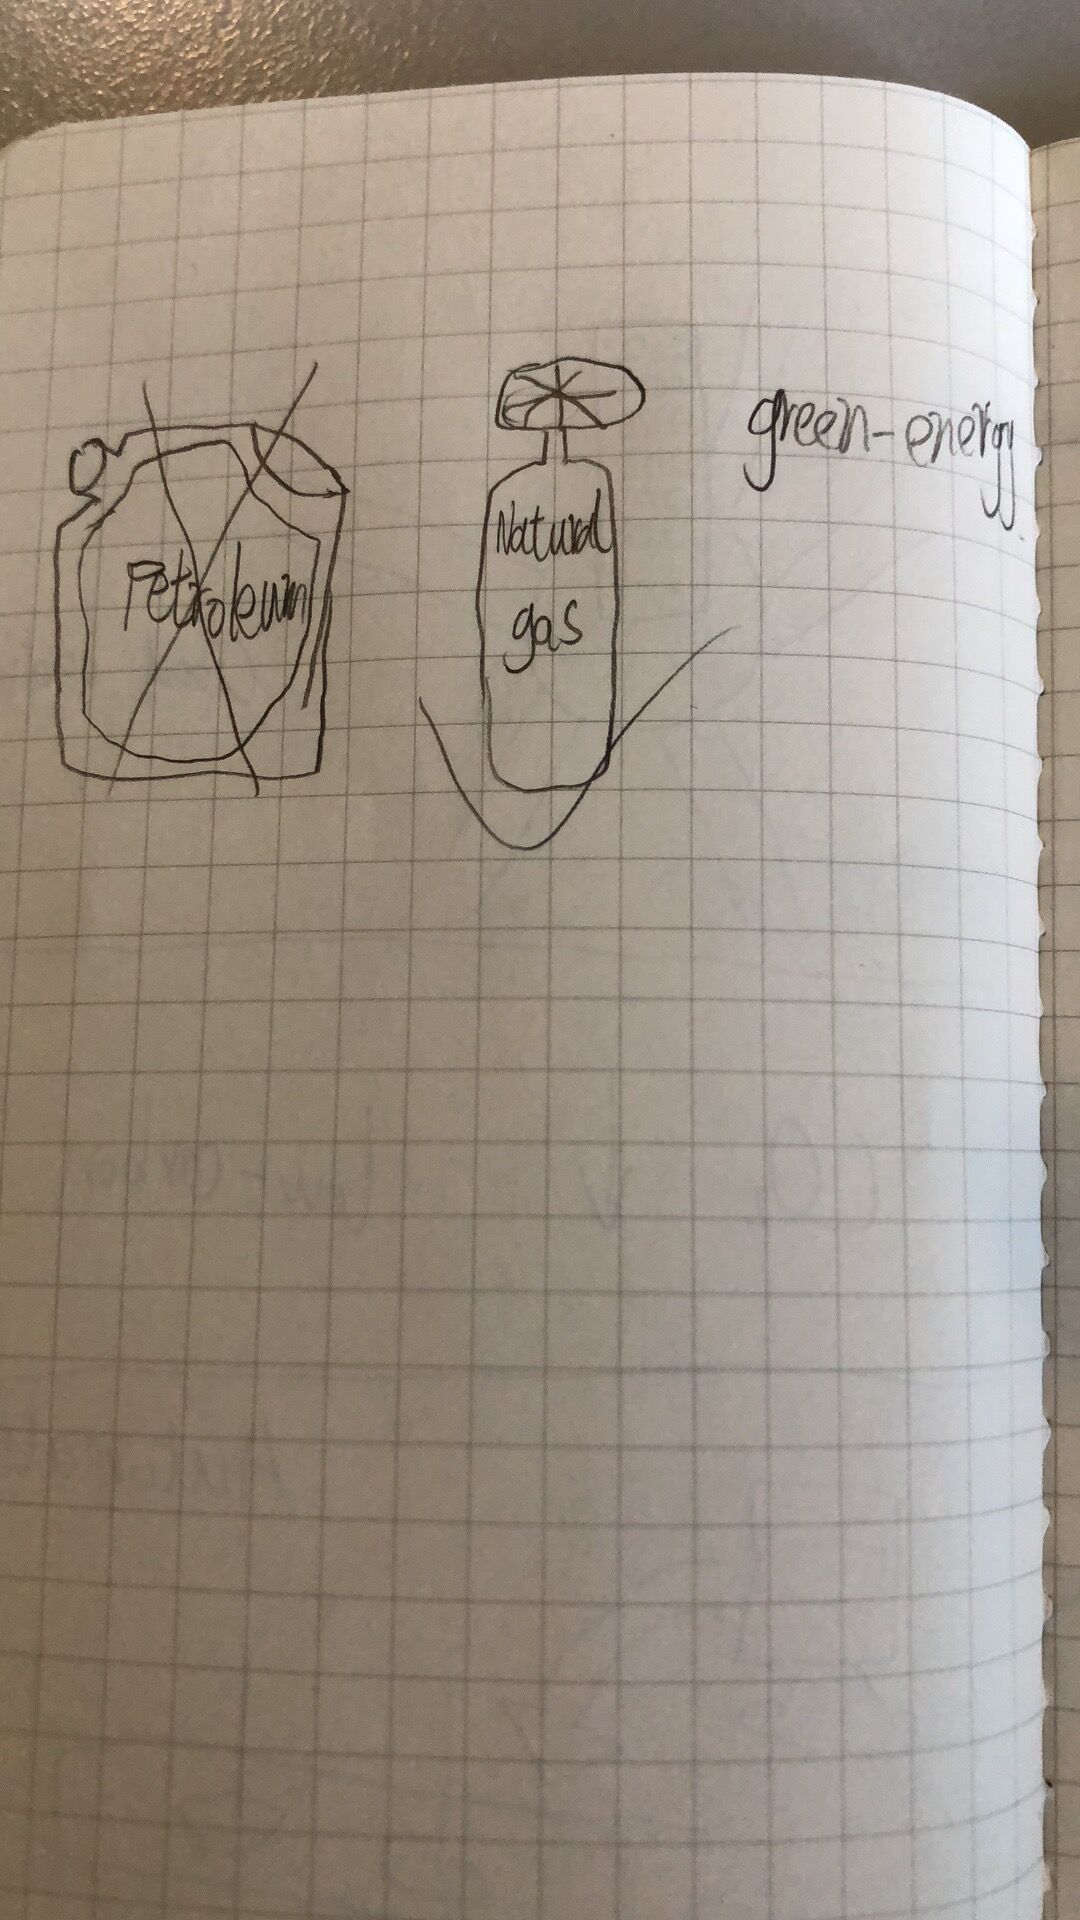 Petroleum
Natural
gas
green-energy